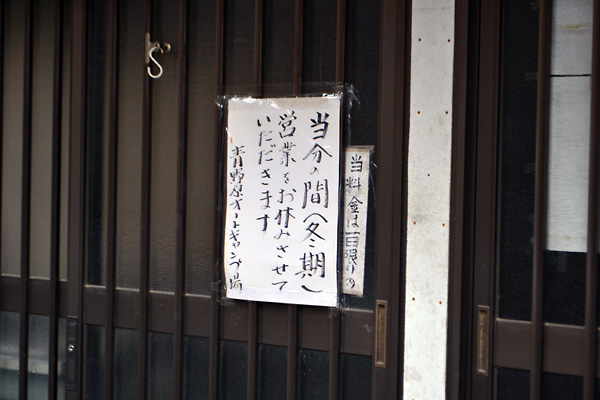 当料金は一日限りの
当分の間(冬期)
営業をお休みさせて
いただきます
青野原オートキャンプ場